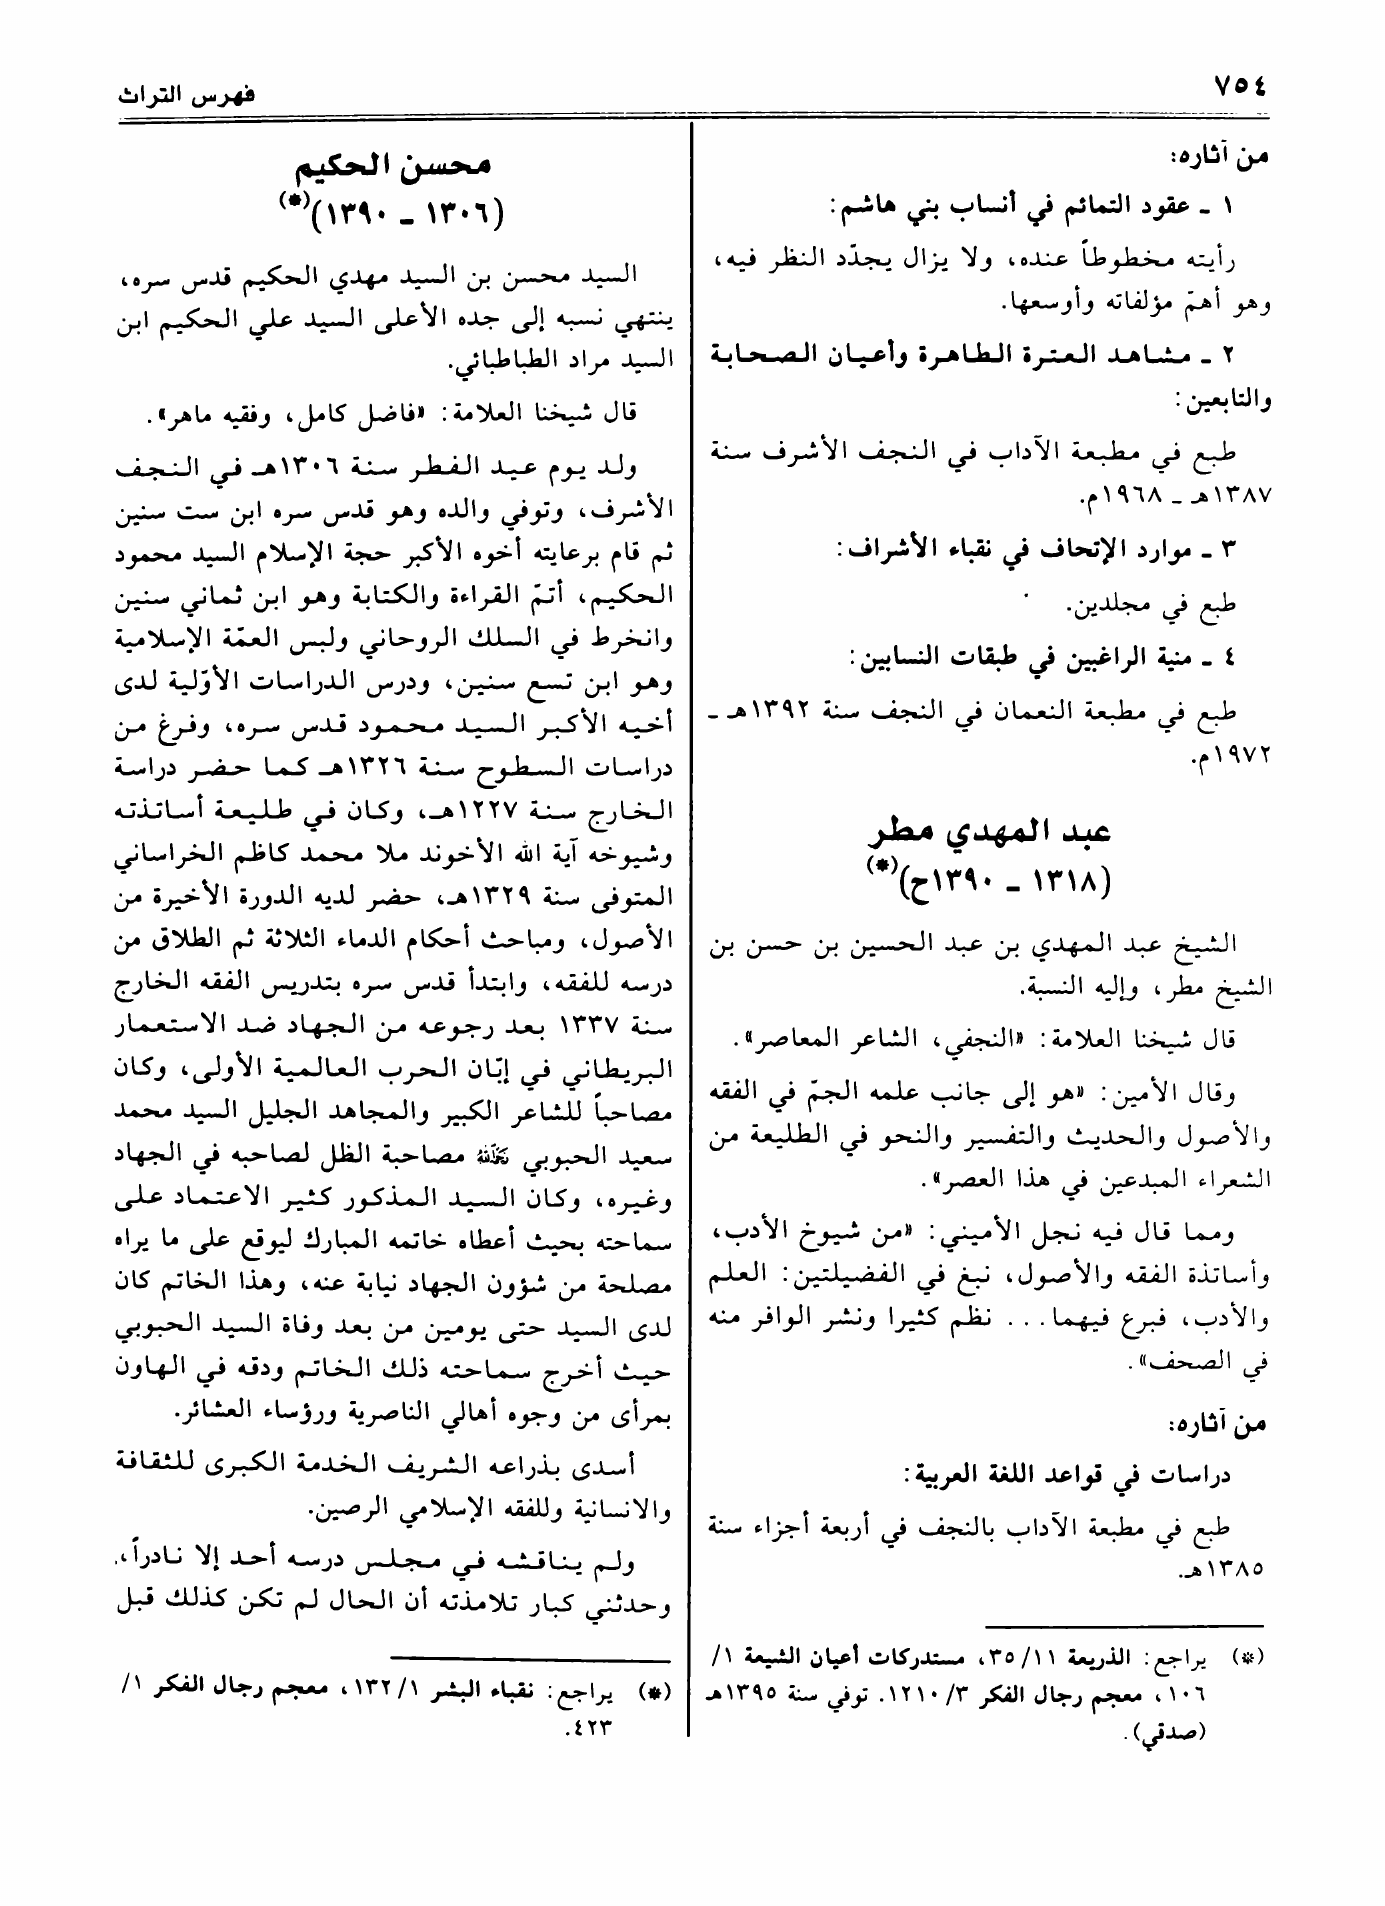 ٧٥٤
فهرس التراث
من آثاره:
١ ـ عقود التمائم في أنساب بني هاشم:
رأيته مخطوطاً عنده، ولا يزال يجدّد النظر فيه،
وهو أهمّ مؤلفاته وأوسعها.
٢ ـ مشاهد العترة الطاهرة وأعيان الصحابة
والتابعين:
طبع في مطبعة الآداب في النجف الأشرف سنة
١٣٨٧هـ ـ ١٩٦٨م.
٣ ـ موارد الإتحاف في نقباء الأشراف:
طبع في مجلدين.
٤ ـ منية الراغبين في طبقات النسابين:
طبع في مطبعة النعمان في النجف سنة ١٣٩٢هـ ـ
١٩٧٢م.
عبد المهدي مطر
(١٣١٨ ـ ١٣٩٠ح)(*)
الشيخ عبد المهدي بن عبد الحسين بن حسن بن
الشيخ مطر، وإليه النسبة.
قال شيخنا العلامة: «النجفي، الشاعر المعاصر».
وقال الأمين: «هو إلى جانب علمه الجمّ في الفقه
والأصول والحديث والتفسير والنحو في الطليعة من
الشعراء المبدعين في هذا العصر».
ومما قال فيه نجل الأميني: «من شيوخ الأدب،
وأساتذة الفقه والأصول، نبغ في الفضيلتين: العلم
والأدب، فبرع فيهما... نظم كثيرا ونشر الوافر منه
في الصحف».
من آثاره:
دراسات في قواعد اللغة العربية:
طبع في مطبعة الآداب بالنجف في أربعة أجزاء سنة
١٣٨٥هـ.
(*) يراجع: الذريعة ١١/ ٣٥، مستدركات أعيان الشيعة ١/
١٠٦، معجم رجال الفكر ٣/ ١٢١٠. توفي سنة ١٣٩٥هـ
(صدقي).
محسن الحكيم
(١٣٠٦ ـ ١٣٩٠)(*)
السيد محسن بن السيد مهدي الحكيم قدس سره،
ينتهي نسبه إلى جده الأعلى السيد علي الحكيم ابن
السيد مراد الطباطبائي.
قال شيخنا العلامة: «فاضل كامل، وفقيه ماهر».
ولد يوم عيد الفطر سنة ١٣٠٦هـ في النجف
الأشرف، وتوفي والده وهو قدس سره ابن ست سنين
ثم قام برعايته أخوه الأكبر حجة الإسلام السيد محمود
الحكيم، أتمّ القراءة والكتابة وهو ابن ثماني سنين
وانخرط في السلك الروحاني ولبس العمّة الإسلامية
وهو ابن تسع سنين، ودرس الدراسات الأوّلية لدى
أخيه الأكبر السيد محمود قدس سره، وفرغ من
دراسات السطوح سنة ١٣٢٦هـ كما حضر دراسة
الخارج سنة ١٢٢٧هـ، وكان في طليعة أساتذته
وشيوخه آية الله الأخوند ملا محمد كاظم الخراساني
المتوفى سنة ١٣٢٩هـ، حضر لديه الدورة الأخيرة من
الأصول، ومباحث أحكام الدماء الثلاثة ثم الطلاق من
درسه للفقه، وابتدأ قدس سره بتدريس الفقه الخارج
سنة ١٣٣٧ بعد رجوعه من الجهاد ضد الاستعمار
البريطاني في إبّان الحرب العالمية الأولى، وكان
مصاحباً للشاعر الكبير والمجاهد الجليل السيد محمد
سعيد الحبوبي رحمه الله مصاحبة الظل لصاحبه في الجهاد
وغيره، وكان السيد المذكور كثير الاعتماد على
سماحته بحيث أعطاه خاتمه المبارك ليوقع على ما يراه
مصلحة من شؤون الجهاد نيابة عنه، وهذا الخاتم كان
لدى السيد حتى يومين من بعد وفاة السيد الحبوبي
حيث أخرج سماحته ذلك الخاتم ودقه في الهاون
بمرأى من وجوه أهالي الناصرية ورؤساء العشائر.
أسدى بذراعه الشريف الخدمة الكبرى للثقافة
والانسانية وللفقه الإسلامي الرصين.
ولم يناقشه في مجلس درسه أحد إلا نادراً،
وحدثني كبار تلامذته أن الحال لم تكن كذلك قبل
(*) يراجع: نقباء البشر ١/ ١٣٢، معجم رجال الفكر ١/
٤٢٣.